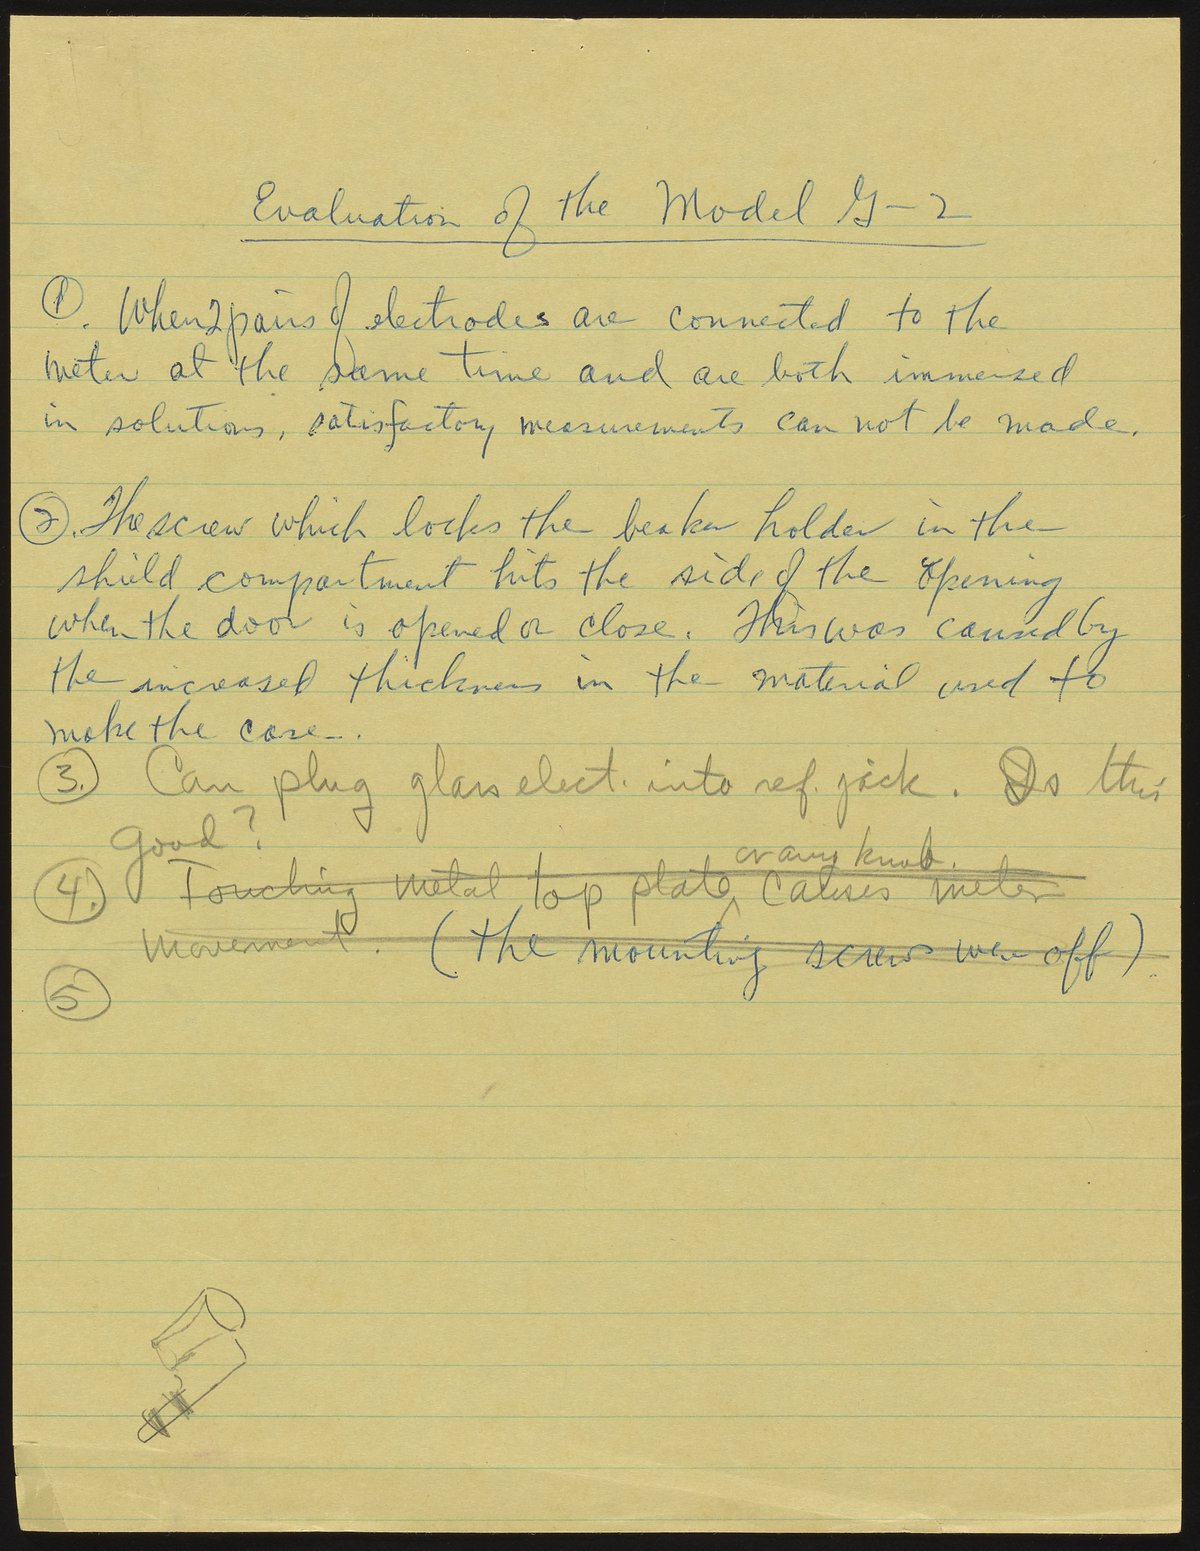 Evaluation of the Model G-2
①. When 2 pairs of electrodes are connected to the
meter at the same time and are both immersed
in solutions, satisfactory measurements can not be made.
②. The screw which locks the beaker holder in the
shield compartment hits the side of the opening
when the door is opened or close. This was caused by
the increased thickness in the material used to
make the case.
③. Can plug glass elect. into ref. jack. Is this
good?
or any knob.
④. Touching metal top plate ^ causes meter
movement. (the mounting screws were off).
⑤